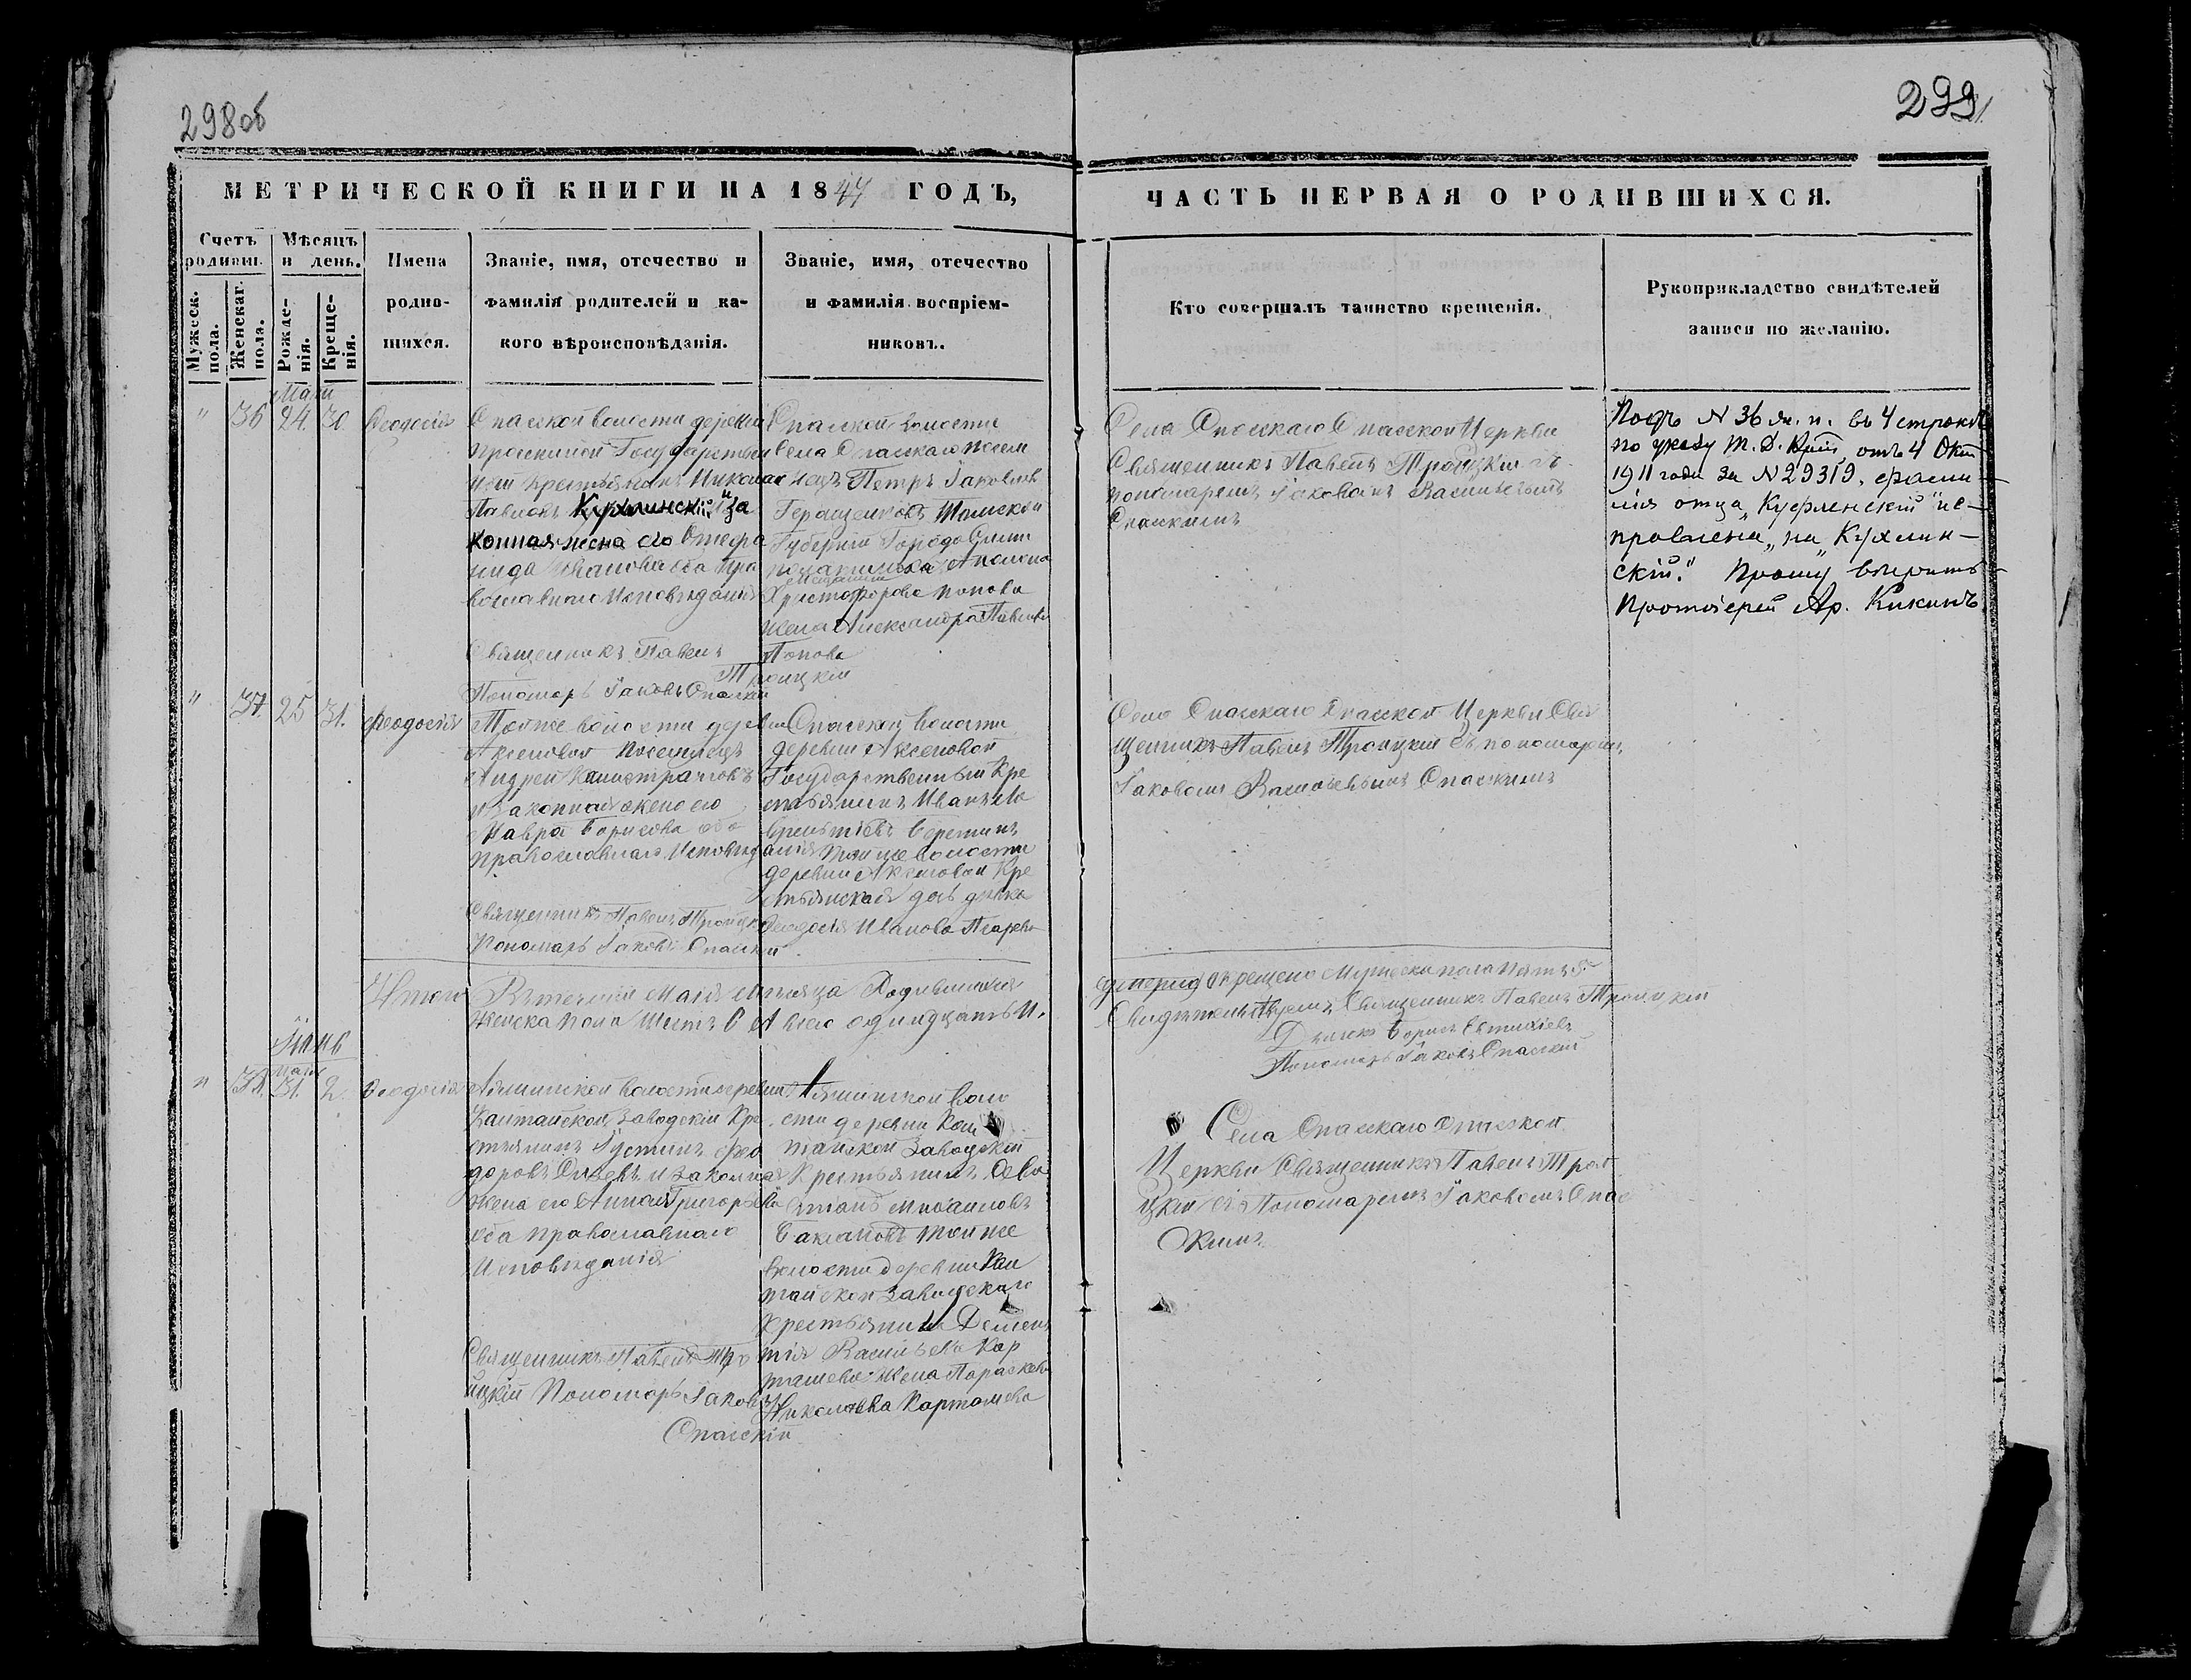 298об
299
МЕТРИЧЕСКОЙ КНИГИ НА 1847 ГОДЪ,
ЧАСТЬ ПЕРВАЯ О РОДИВШИХСЯ.
Счетъ родивш.
Мужеск. пола.
Женскаг. пола.
Мѣсяцъ и день.
Рожде-
нія.
Креще-
нія.
Имена
родив-
шихся.
Званіе, имя, отечество и
фамилія родителей и ка-
кого вѣроисповѣданія.
Званіе, имя, отечество
и фамилія воспріем-
никовъ.
Кто совершалъ таинство крещенія.
Рукоприкладство свидѣтелей
записи по желанію.
Маіи
" 36 24. 30 Феодосія
Спаской волости деревни
Государствен
ной крестьянинъ Николай
Павловъ Кухлинскій и за
конная жена его Стефа
нида Иванова оба пра
вославнаго Исповѣданія
Священникъ Павелъ
Троицкій
Пономарь Іаковъ Спаскій
Спаской волости
села Спаскаго посел
нецъ Петръ Іаковлевъ
Геращенковъ Томской
Губерніи Города Семи
Христофорова Попова
жена Александра Павлова
Попова
Села Спаскаго Спаской Церкви
Священникъ Павелъ Троицкій съ
пономаремъ Іаковомъ Васильевымъ
Спаскимъ
Подъ № 36 ж. п. въ 4 строкѣ
по указу Т. Д. Конс. отъ 4 Окт.
1911 года за № 29319, фами-
лія отца „Куфленскій" ис-
правлена „на „Кухлин-
скій." Прошу вѣрить
Протоіерей Ар. Кикинъ
" 37. 25 31. Феодосія
Тойже волости деревни
Аксеновой поселенецъ
Андрей Калистратовъ
и законная жена его
Мавра Борисова оба
православнаго Исповѣданія
Священникъ Павелъ Троицкій
Пономарь Іаковъ Спаскій
Спаской волости
деревни Аксеновой
Государственный Кре
стьянинъ Иванъ Ла
врентіевъ Берешинъ
тойже волости
деревни Аксеновой Кре
стьянская дочь дѣвка
Феодосія Иванова
Села Спаскаго Спаской Церкви Свя
щенникъ Павелъ Троицкій съ пономаремъ
Іаковомъ Васильевымъ Спаскимъ
Итого Въ теченіи Маія мѣсяца Родившихся
Женска пола Шесть 6 А всего одиндцать И.
крещено Мужеска пола пять 5.
Священникъ Павелъ Троицкій
Дьячекъ Борисъ Евтихіевъ
Пономарь Іаковъ Спаскій
Іюнь
маія
" 38. 31. 2. Феодосія
волости деревни
Каштайской Заводскій Кре
стьянинъ Іустинъ Фео
доровъ и законная
жена его Анна Григорьева
оба православнаго
Исповѣданія
Священникъ Павелъ Тро
ицкій Пономарь Іаковъ
Спаскій
воло
сти деревни Каш
тайской Заводской
Крестьянинъ Сева
стіанъ Михаиловъ
Баклановъ тойже
волости деревни Каш
тайской Заводскаго
Крестьянина Демен
тія Васильева Кар
ташева жена Параскева
Николаева Карташева
Села Спаскаго Спаской
Церкви Священникъ Павелъ Трои
цкій съ Пономаремъ Іаковомъ Спас
кимъ